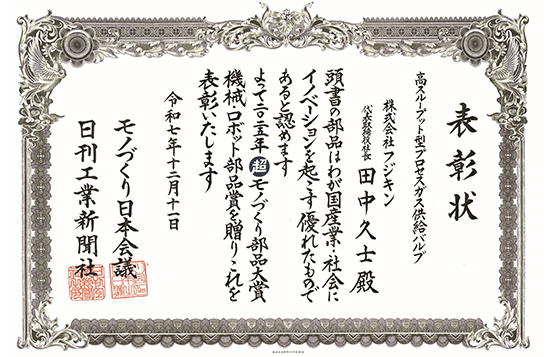 表彰状
高スループット型プロセスガス供給バルブ
株式会社フジキン
代表取締役社長 田中久士 殿
頭書の部品はわが国産業・社会に
イノベーションを起こす優れたもので
あると認めます
よって二〇二五年超モノづくり部品大賞
機械・ロボット部品賞を贈りこれを
表彰いたします
令和七年十二月十一日
モノづくり日本会議
日刊工業新聞社